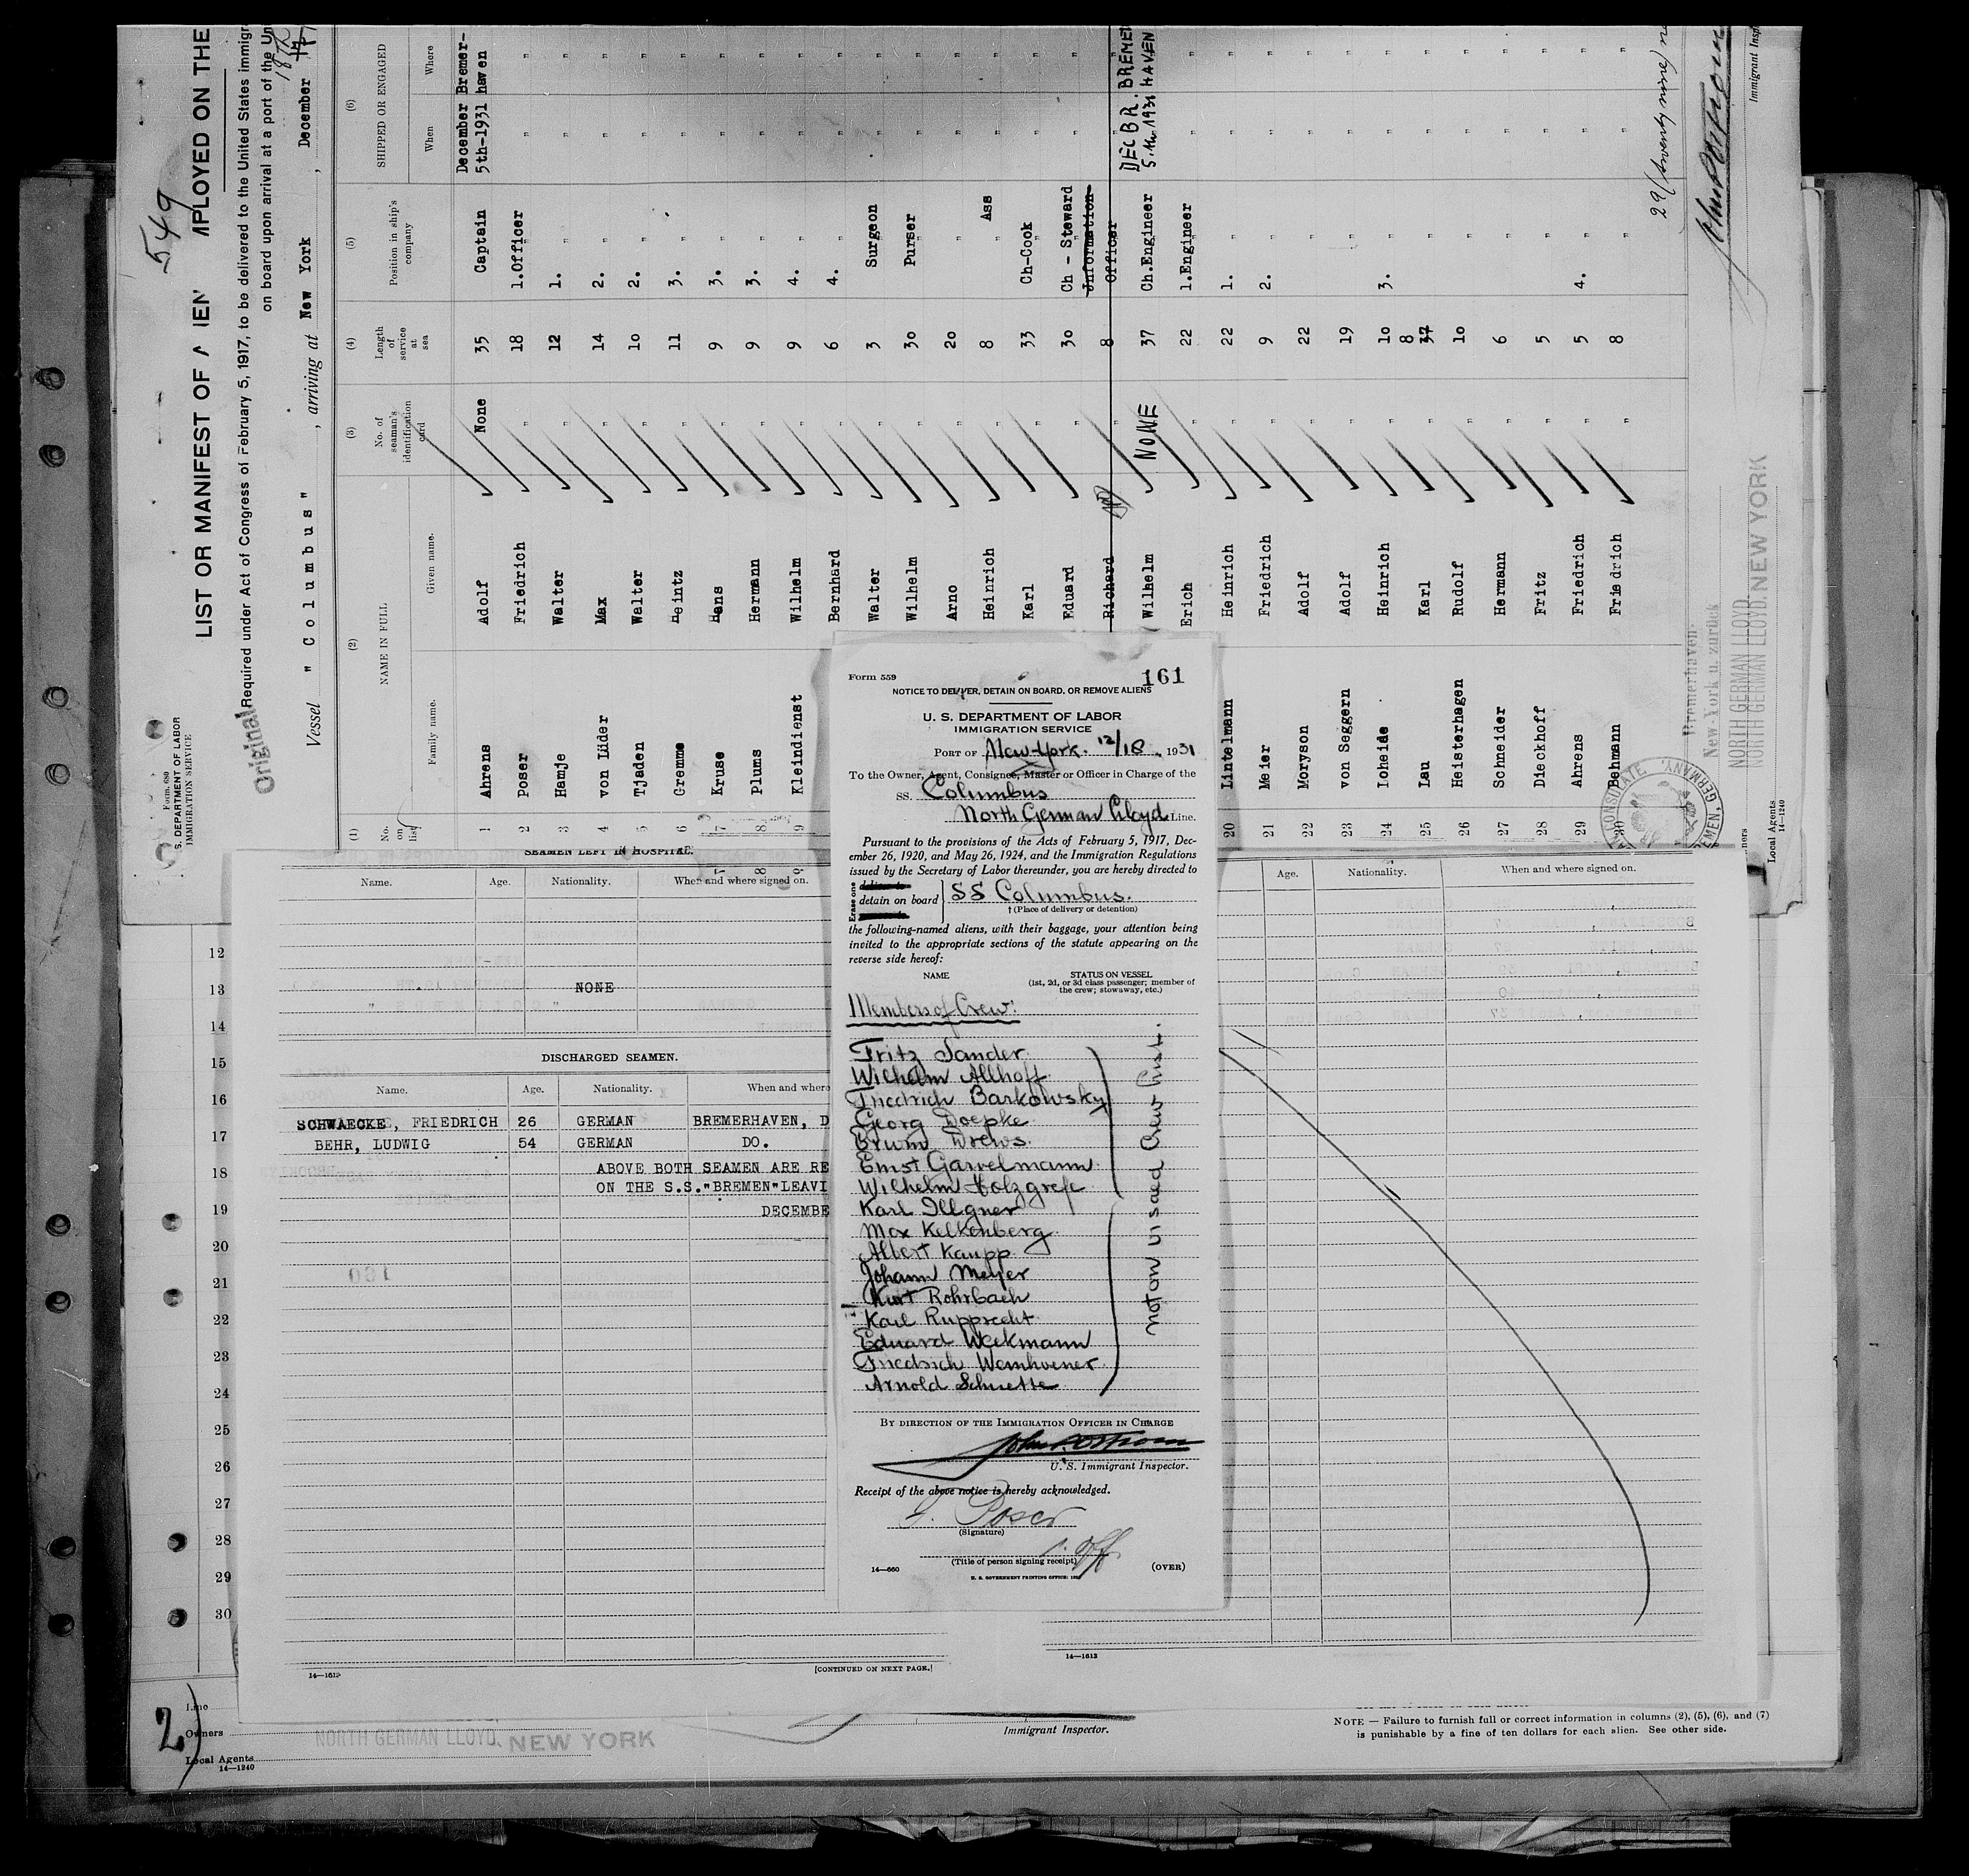 549
Form 680
U. S. DEPARTMENT OF LABOR
IMMIGRATION SERVICE
LIST OR MANIFEST OF A IEN MPLOYED ON THE
Original
Required under Act of Congress of February 5, 1917, to be delivered to the United States immigr
on board upon arrival at a port of the Un
Vessel " Columbus " , arriving at New York , December
(1) (2) (3) (4) (5) (6)
No. on list
NAME IN FULL
Family name. Given name.
No. of seaman's identification card
Length of service at sea
Position in ship's company
SHIPPED OR ENGAGED
When Where
1 Ahrens Adolf None 35 Captain December 5th-1931 Bremer-haven
2 Poser Friedrich " 18 1.Officer " "
3 Hamje Walter " 12 1. " " "
4 von Lüder Max " 14 2. " " "
5 Tjaden Walter " 10 2. " " "
6 Gremme Heintz " 11 3. " " "
7 Kruse Hans " 9 3. " " "
8 Plums Hermann " 9 3. " " "
9 Kleindienst Wilhelm " 9 4. " " "
Bernhard " 6 4. " " "
Walter " 3 Surgeon " "
Wilhelm " 30 Purser " "
Arno " 20 " " "
Heinrich " 8 " Ass " "
Karl " 33 Ch-Cook " "
Eduard " 30 Ch - Steward " "
Richard " 8 Information Officer " "
Wilhelm NONE 37 Ch.Engineer DECBR. 5.th 1931 BREMER HAVEN
Erich " 22 1.Engineer " "
20 Lintelmann Heinrich " 22 1. " " "
21 Meier Friedrich " 9 2. " " "
22 Moryson Adolf " 22 " " "
23 von Seggern Adolf " 19 " " "
24 Loheide Heinrich " 10 3. " " "
25 Lau Karl " 8 37 " " "
26 Heisterhagen Rudolf " 10 " " "
27 Schneider Hermann " 6 " " "
28 Dieckhoff Fritz " 5 " " "
29 Ahrens Friedrich " 5 4. " " "
30 Behmann Friedrich " 8 " " "
29 (twenty nine)
Immigrant Insp
Bremerhaven-
New-York u. zurück
NORTH GERMAN LLOYD.
NORTH GERMAN LLOYD. NEW YORK
Local Agents
14—1240
Form 559
161
NOTICE TO DELIVER, DETAIN ON BOARD, OR REMOVE ALIENS
U. S. DEPARTMENT OF LABOR
IMMIGRATION SERVICE
PORT OF New-York. 12/18, 1931
To the Owner, Agent, Consignee, Master or Officer in Charge of the
SS. Columbus
North German Lloyd Line.
Pursuant to the provisions of the Acts of February 5, 1917, Dec-
ember 26, 1920, and May 26, 1924, and the Immigration Regulations
issued by the Secretary of Labor thereunder, you are hereby directed to
Erase one
detain on board SS Columbus.
† (Place of delivery or detention)
the following-named aliens, with their baggage, your attention being
invited to the appropriate sections of the statute appearing on the
reverse side hereof:
NAME STATUS ON VESSEL
(1st, 2d, or 3d class passenger; member of
the crew; stowaway, etc.)
Members of Crew:
Fritz Sander
Wilhelm Allhoff
Friedrich Barkowsky
Georg Doepke
Erwin Drews
Ernst Garvelmann
Wilhelm Holzgrefe
Karl Illgner
Max Kelkenberg
Albert Kaupp
Johann Meyer
Kurt Rohrbach
Karl Rupprecht
Eduard Weekmann
Friedrich Wemhoener
Arnold Schuette
not on visaed Crew List.
BY DIRECTION OF THE IMMIGRATION OFFICER IN CHARGE
U. S. Immigrant Inspector.
Receipt of the above notice is hereby acknowledged.
Poser
(Signature)
1. Off.
(Title of person signing receipt)
14—660
(OVER)
U. S. GOVERNMENT PRINTING OFFICE
SEAMEN LEFT IN HOSPITAL.
Name. Age. Nationality. When and where signed on.
NONE
DISCHARGED SEAMEN.
Name. Age. Nationality. When and where
SCHWAECKE, FRIEDRICH 26 GERMAN BREMERHAVEN, D
BEHR, LUDWIG 54 GERMAN DO.
ABOVE BOTH SEAMEN ARE RE
ON THE S.S."BREMEN"LEAVI
DECEMBE
14—1613
[CONTINUED ON NEXT PAGE.]
Age. Nationality. When and where signed on.
14—1613
12
13
14
15
16
17
18
19
20
21
22
23
24
25
26
27
28
29
30
2)
Line
Owners NORTH GERMAN LLOYD. NEW YORK
Local Agents
14—1240
Immigrant Inspector.
NOTE — Failure to furnish full or correct information in columns (2), (5), (6), and (7)
is punishable by a fine of ten dollars for each alien. See other side.